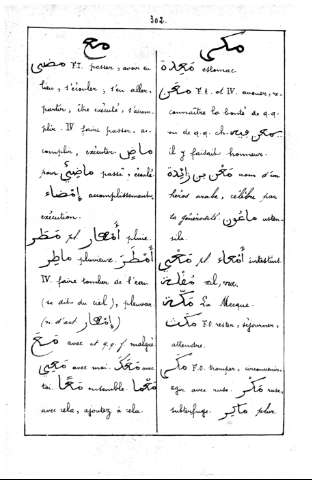 302.
مع
مضى F.I. passer, avoir eu
lieu, s'écouler; s'en aller,
partir, être exécuté, s'accom-
plir. IV faire passer, ac-
complir, exécuter ماضٍ
pour ماضيٌ passé; écoulé
إمضاء accomplissement,
exécution.
مطر pl أمطار pluie.
ماطر pluvieux. أمطر
IV. faire tomber de l'eau
(se dit du ciel), pleuvoir
(n. d'act إمطار)
مع avec et q.q.f malgré
معي avec moi. معك avec
toi. معًا ensemble معما
avec cela, ajoutez à cela.
مكى
معدة estomac.
معن F.I. et IV. avouer, re-
connaître la bonté de q.q.
ou de q.q. ch. معن فيه
il y faisait honneur.
معن بن زائدة nom d'un
héros arabe, célèbre par
la générosité ماعون usten-
sile.
معي pl أمعاء intestins.
مقلة œil,
مكة La Mecque.
مكث F.O. rester, séjourner,
attendre.
F.O. tromper,
agir avec ruse. مكر ruse,
subterfuge. ماكر plur.